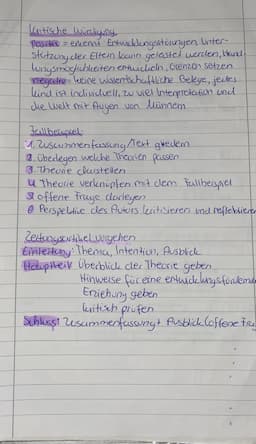 Kritische Würdigung
Positiv = erkennt Entwicklungsstörungen, Unter-
stützung der Eltern kann getastet werden, Hand-
lungsmöglichkeiten entwickeln, Grenzen setzen
negativ = keine wissenschaftliche Belege, jedes
Kind ist individuell, zu viel Interpretation und
die Welt mit Augen von Männern
Fallbeispiel:
1. Zusammenfassung/Text gliedern
2. überlegen welche Theorien passen
3. Theorie darstellen
4. Theorie verknüpfen mit dem Fallbeispiel
5. offene Frage darlegen
6. Perspektive des Autors kritisieren und reflektieren
Zeitungsartikel
Einleitung: Thema, Intention, Ausblick
Hauptteil: Überblick der Theorie geben
Hinweise für eine entwicklungsfördernde
Erziehung geben
kritisch prüfen
Schluss: Zusammenfassung + Ausblick (offene